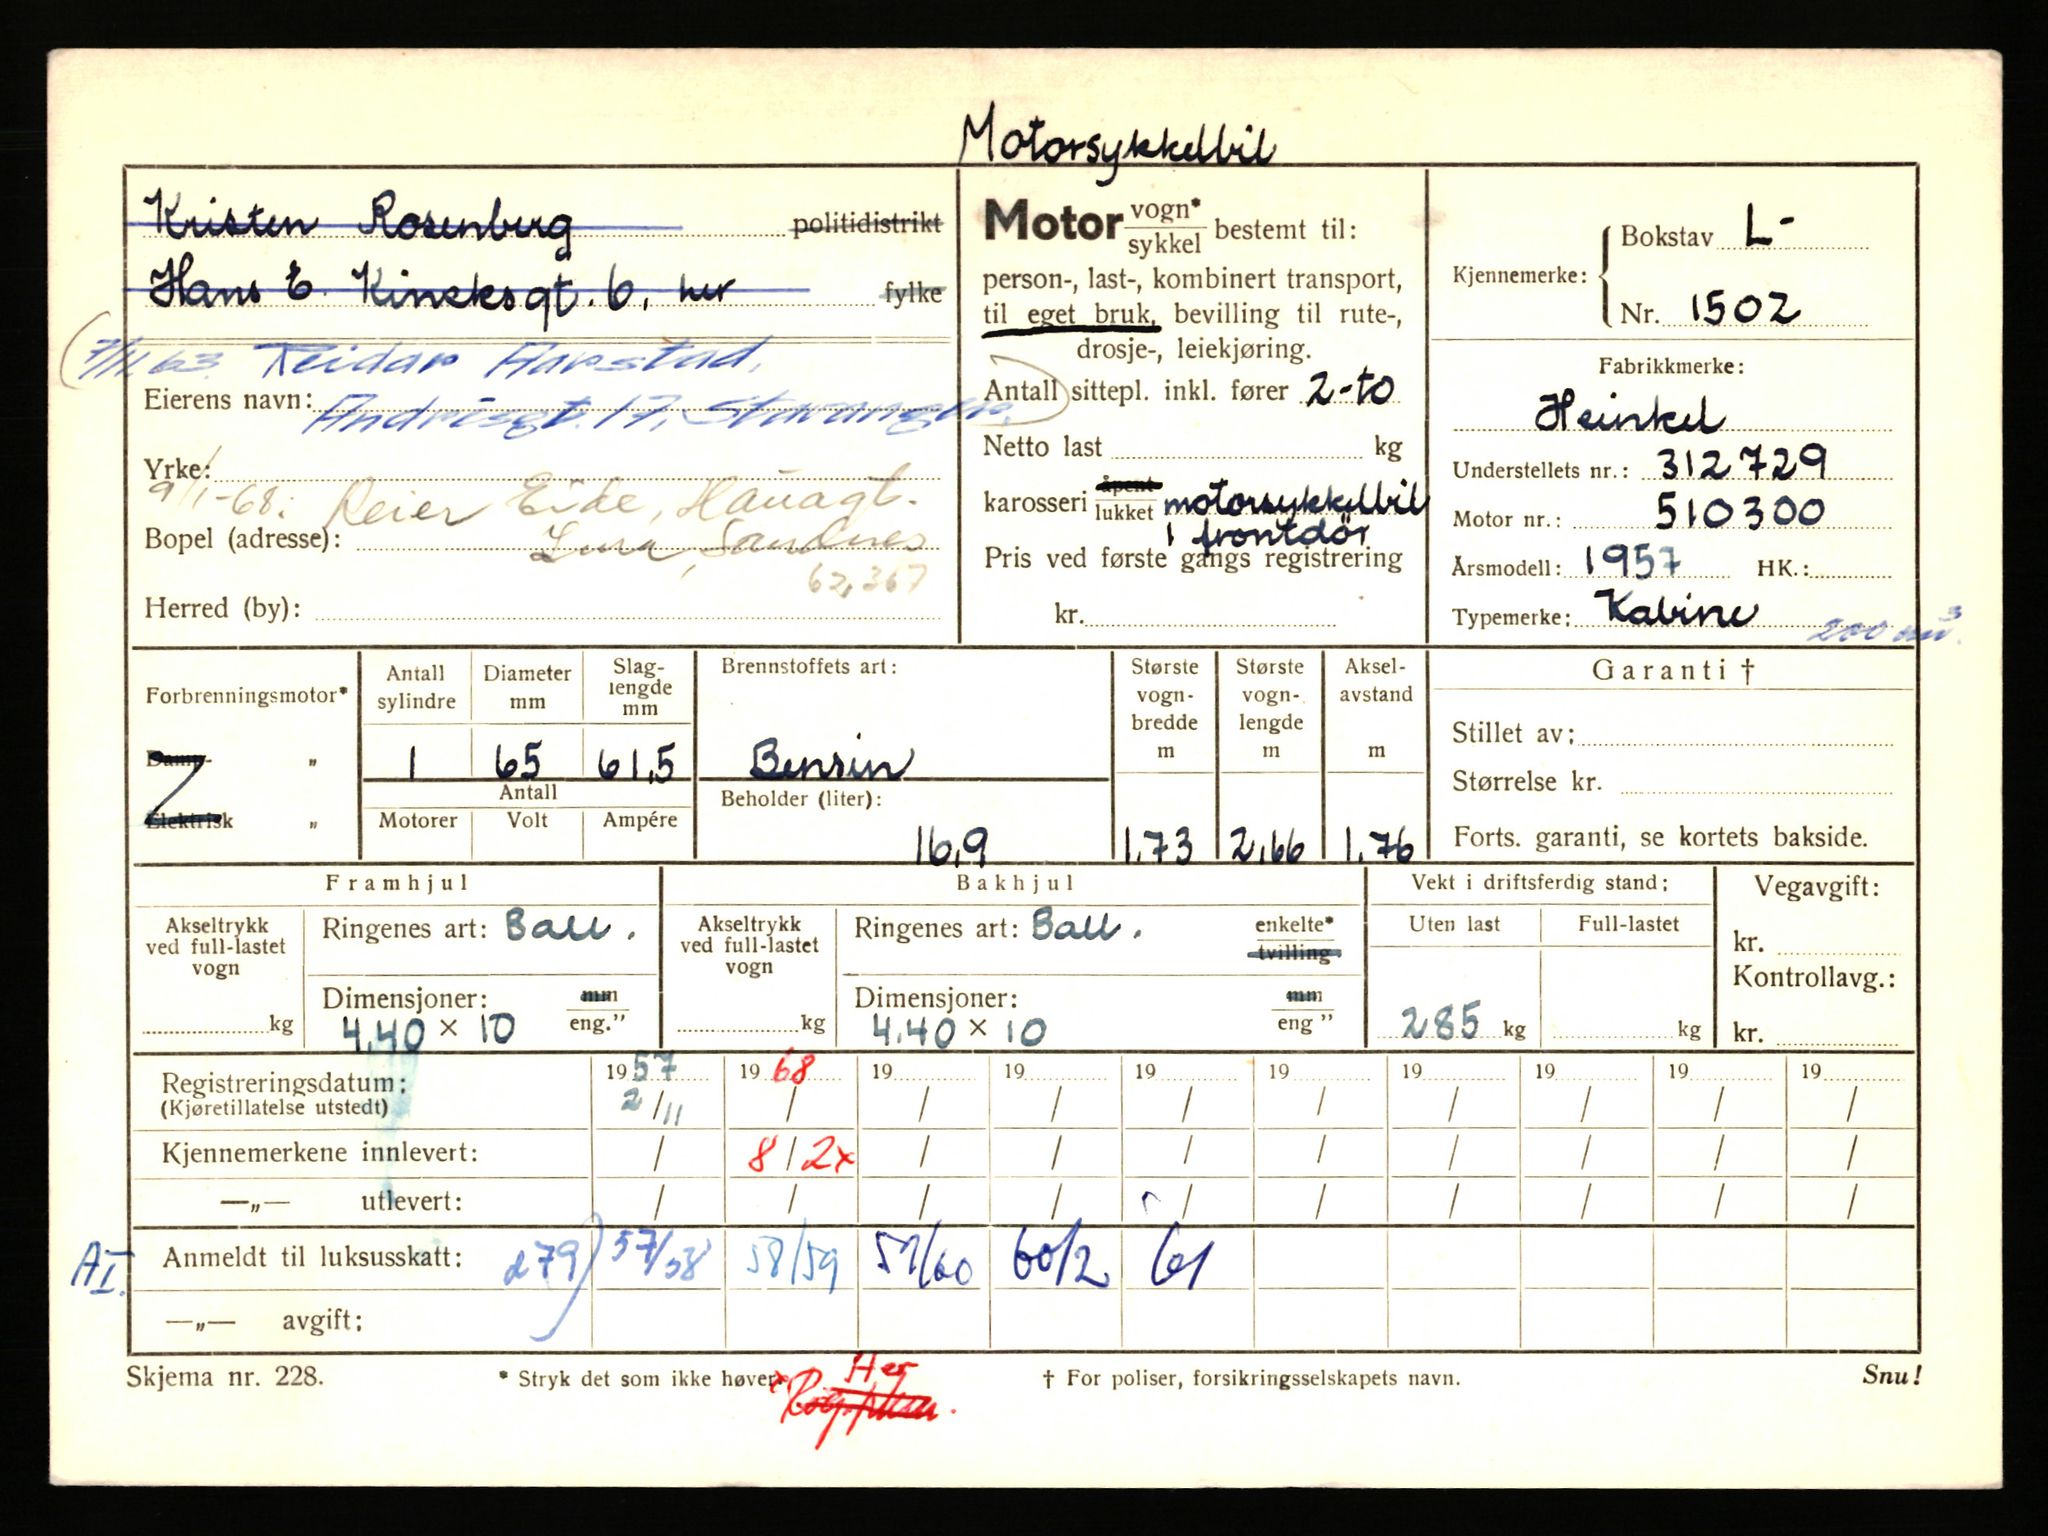 Motorsykkelbil
Kristen Rosenberg politidistrikt
Hans E. Kincksgt. 6, her fylke
7/11.63. Reidar Aarstad,
Eierens navn: Andrésgt. 17, Stavanger.
Yrke:
9/1-68: Reier Eide, Hauagt.
Bopel (adresse): Lura, Sandnes
62,367
Herred (by):
Motor vogn* sykkel bestemt til:
person-, last-, kombinert transport,
til eget bruk, bevilling til rute-,
drosje-, leiekjøring.
Antall sittepl. inkl. fører 2-to
Netto last kg
karosseri åpent lukket motorsykkelbil
1 frontdör
Pris ved første gangs registrering
kr.
Kjennemerke: Bokstav L-
Nr. 1502
Fabrikkmerke:
Heinkel
Understellets nr.: 312729
Motor nr.: 510300
Årsmodell: 1957 HK.:
Typemerke: Kabine
200 cm³.
Forbrenningsmotor*
Damp- „
Elektrisk „
Antall sylindre Diameter mm Slag-lengde mm
1 65 61,5
Antall
Motorer Volt Ampére
Brennstoffets art:
Bensin
Beholder (liter):
16,9
Største vogn-bredde m
1,73
Største vogn-lengde m
2,66
Aksel-avstand m
1,76
Garanti †
Stillet av:
Størrelse kr.
Forts. garanti, se kortets bakside.
Framhjul
Akseltrykk ved full-lastet vogn
kg
Ringenes art: Ball.
Dimensjoner: mm eng.”
4,40 × 10
Bakhjul
Akseltrykk ved full-lastet vogn
kg
Ringenes art: Ball. enkelte* tvilling
Dimensjoner: mm eng ”
4,40 × 10
Vekt i driftsferdig stand:
Uten last Full-lastet
285 kg kg
Vegavgift:
kr.
Kontrollavg.:
kr.
Registreringsdatum: 1957 1968 19 19 19 19 19 19 19 19
(Kjøretillatelse utstedt) 2/11 / / / / / / / / /
Kjennemerkene innlevert: / 8/2x / / / / / / / /
—„— utlevert: / / / / / / / / / /
A I. Anmeldt til luksusskatt: 279) 57/58 58/59 59/60 60/2 61
—„— avgift:
Skjema nr. 228. * Stryk det som ikke høver. † For poliser, forsikringsselskapets navn. Snu!
x Her